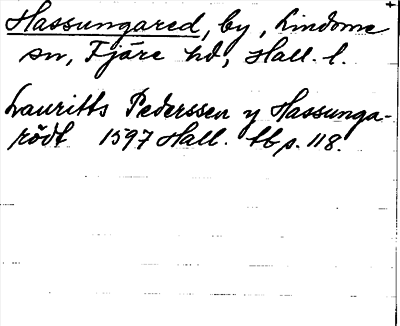 Hassungared, by, Lindome
sn, Fjäre hd, Hall. l.
Lauritts Pederssen y Hassunga-
rödt 1597 Hall. tb s. 118.